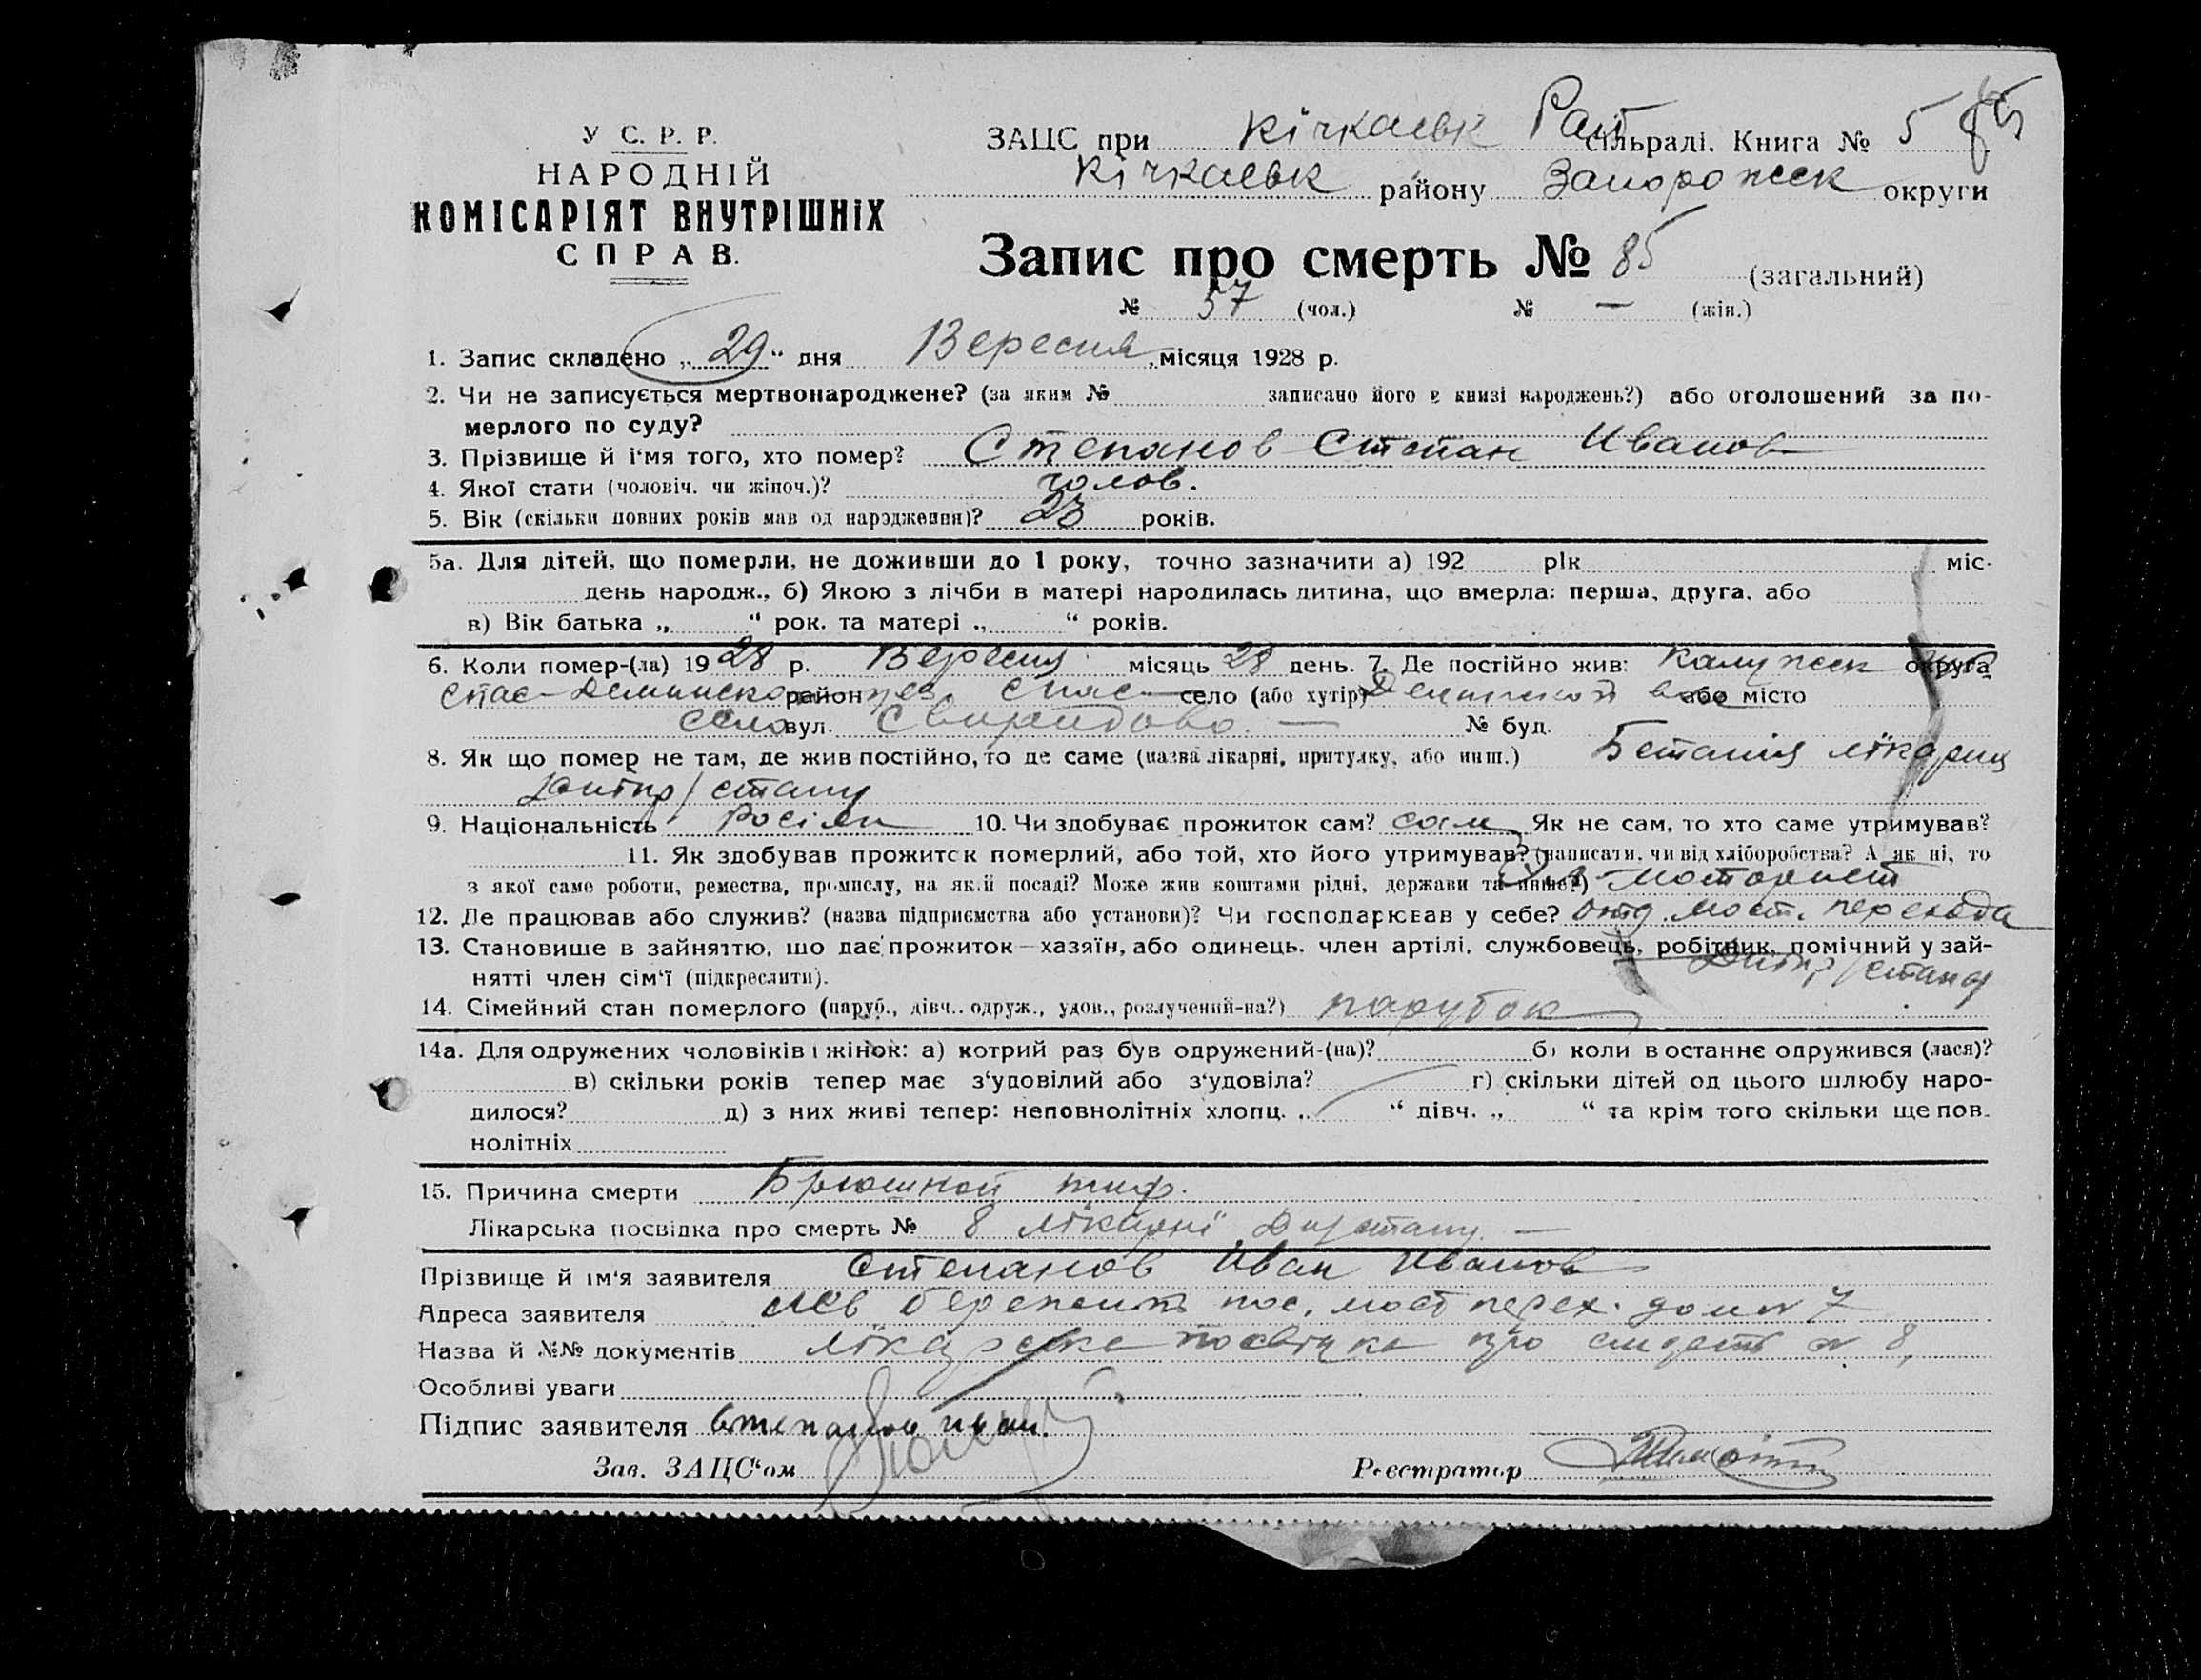 У С. Р. Р.
НАРОДНІЙ
КОМІСАРІЯТ ВНУТРІШНІХ
СПРАВ.
ЗАЦС при Кічкаськ Рай сільраді. Книга № 5 85
Кічкаськ району Запорожск округи
Запис про смерть № 85 (загальний)
№ 57 (чол.) № — (жін.)
1. Запис складено „ 29 “ дня Вересня місяця 1928 р.
2. Чи не записується мертвонароджене? (за яким № записано його в книзі народжень?) або оголошений за по-
мерлого по суду?
3. Прізвище й і‘мя того, хто помер? Степанов Степан Иванов
4. Якої статі (чоловіч. чи жіноч.)? чолов.
5. Вік (скільки повних років мав од народження)? 23 років.
5а. Для дітей, що померли, не доживши до 1 року, точно зазначити а) 192 рік міс.
день народж., б) Якою з лічби в матері народилась дитина, що вмерла: перша, друга, або
в) Вік батька „ “ рок. та матері „ “ років.
6. Коли помер-(ла) 1928 р. Вересня місяць 28 день. 7. Де постійно жив: Калужск губ округа
Спас-Деминско район уез. Спас- село (або хутір) Деминской вол або місто
село вул. Свиридово. — № буд.
8. Як що помер не там, де жив постійно, то де саме (назва лікарні, притулку, або инш.) Бетания лікарня
Дніпр/стану
9. Національність Росіян 10. Чи здобуває прожиток сам? сам Як не сам, то хто саме утримував?
11. Як здобував прожиток померлий, або той, хто його утримував? (написати, чи від хліборобства? А як ні, то
з якої саме роботи, ремества, промислу, на якій посаді? Може жив коштами рідні, держави та инше?) моторист
12. Де працював або служив? (назва підприємства або установи)? Чи господарював у себе? отд. мост. перехода
13. Становище в зайняттю, що дає прожиток—хазяїн, або одинець, член артілі, службовець, робітник, помічний у зай-
Дніпр/стану
нятті член сім‘ї (підкреслити).
14. Сімейний стан померлого (паруб., дівч., одруж., удов., розлучений-на?) парубок
14а. Для одружених чоловіків і жінок: а) котрий раз був одружений-(на)? б) коли в останнє одружився (лася)?
в) скільки років тепер має з‘удовілий або з‘удовіла? г) скільки дітей од цього шлюбу наро-
дилося? д) з них живі тепер: неповнолітніх хлопц. „ “ дівч. „ “ та крім того скільки ще пов-
нолітніх
15. Причина смерти Брюшной тиф.
Лікарська посвідка про смерть № 8 лікарні Дпрстану. —
Прізвище й ім‘я заявителя Степанов Иван Иванов
Адреса заявителя лев бережник пос. мост перех. дом № 7
Назва й №№ документів лікарска посвідка про смерть № 8,
Особливі уваги
Підпис заявителя Степанов Иван.
Зав. ЗАЦС‘ом Реєстратор